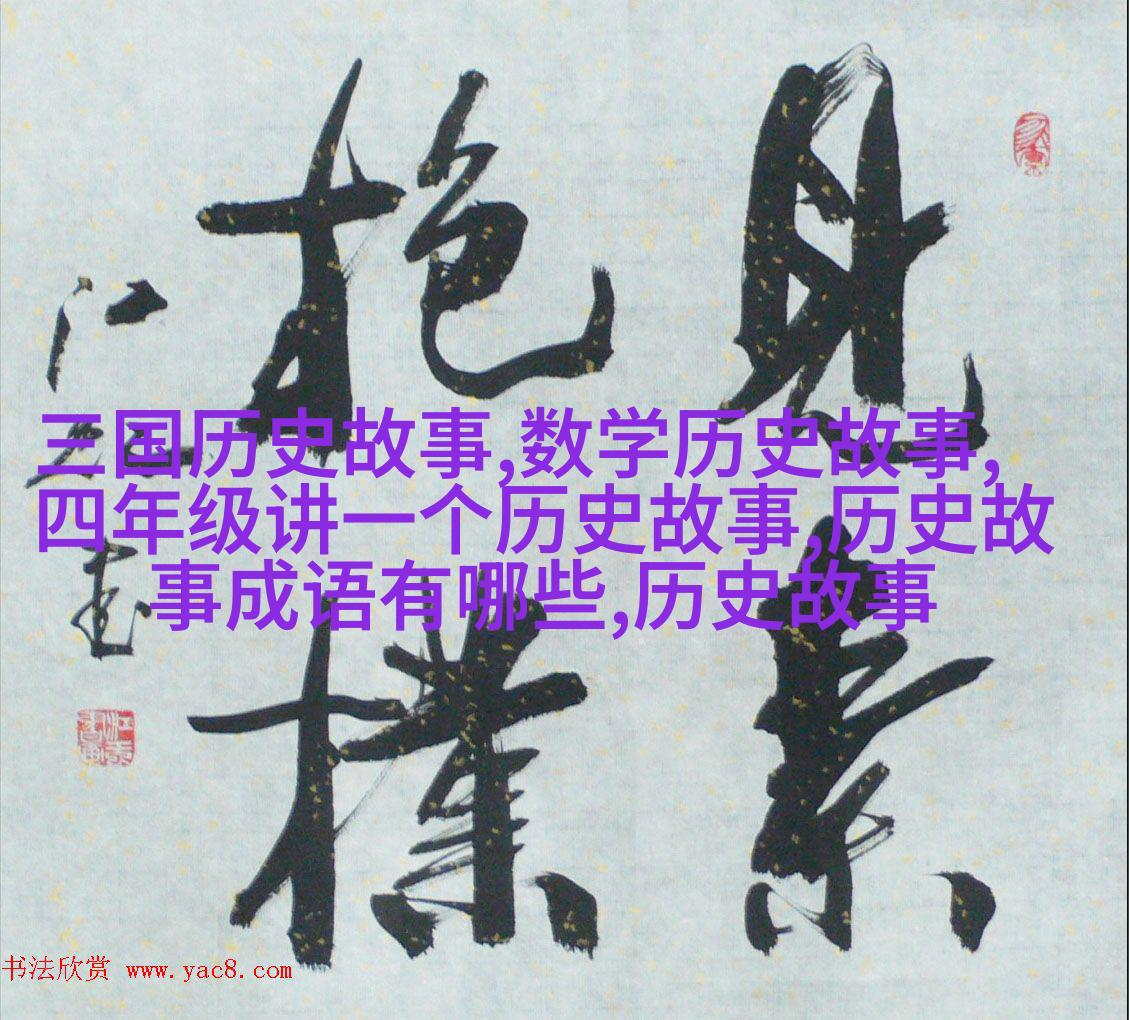 見素
抱樸
三国历史故事,数学历史故事,
四年级讲一个历史故事,历史故
事成语有哪些,历史故事
书法欣赏 www.yac8.com